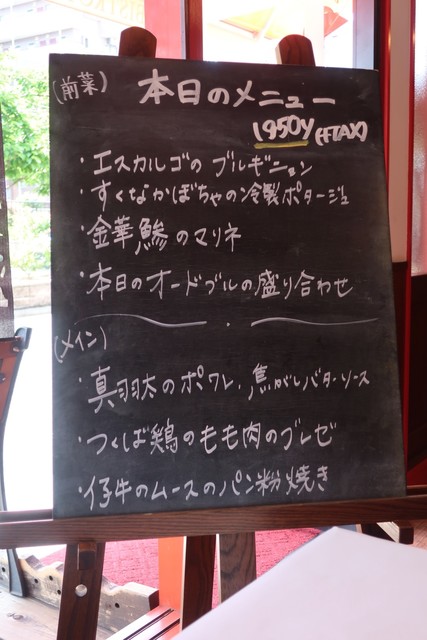 (前菜) 本日のメニュー
1950y (+TAX)
・エスカルゴの ブルギニョン
・すくなかぼちゃの冷製ポタージュ
・金華鯵のマリネ
・本日のオードブルの盛り合わせ
(メイン)
・真羽太のポワレ、焦がしバターソース
・つくば鶏のもも肉のブレゼ
・仔牛のムースのパン粉焼き